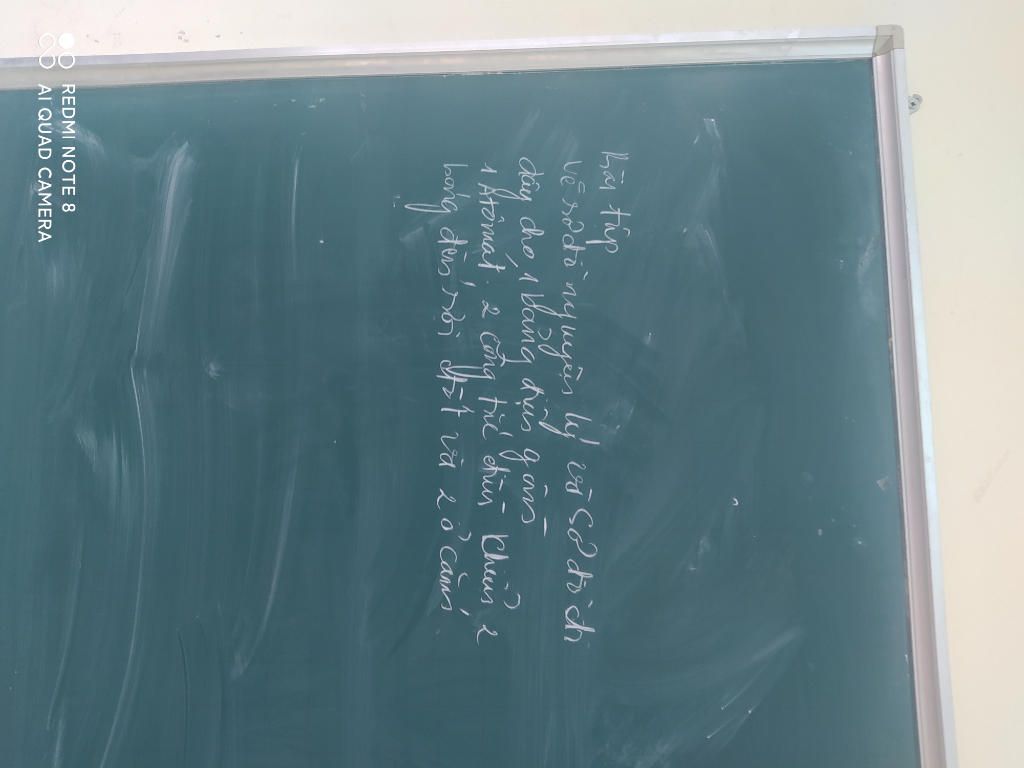 Bài tập
Vẽ sơ đồ nguyên lý và sơ đồ đi
dây cho 1 bảng điện gồm
1 Atomat, 2 công tắc điều khiển, 2
bóng đèn sợi đốt và 2 ổ cắm
REDMI NOTE 8
AI QUAD CAMERA